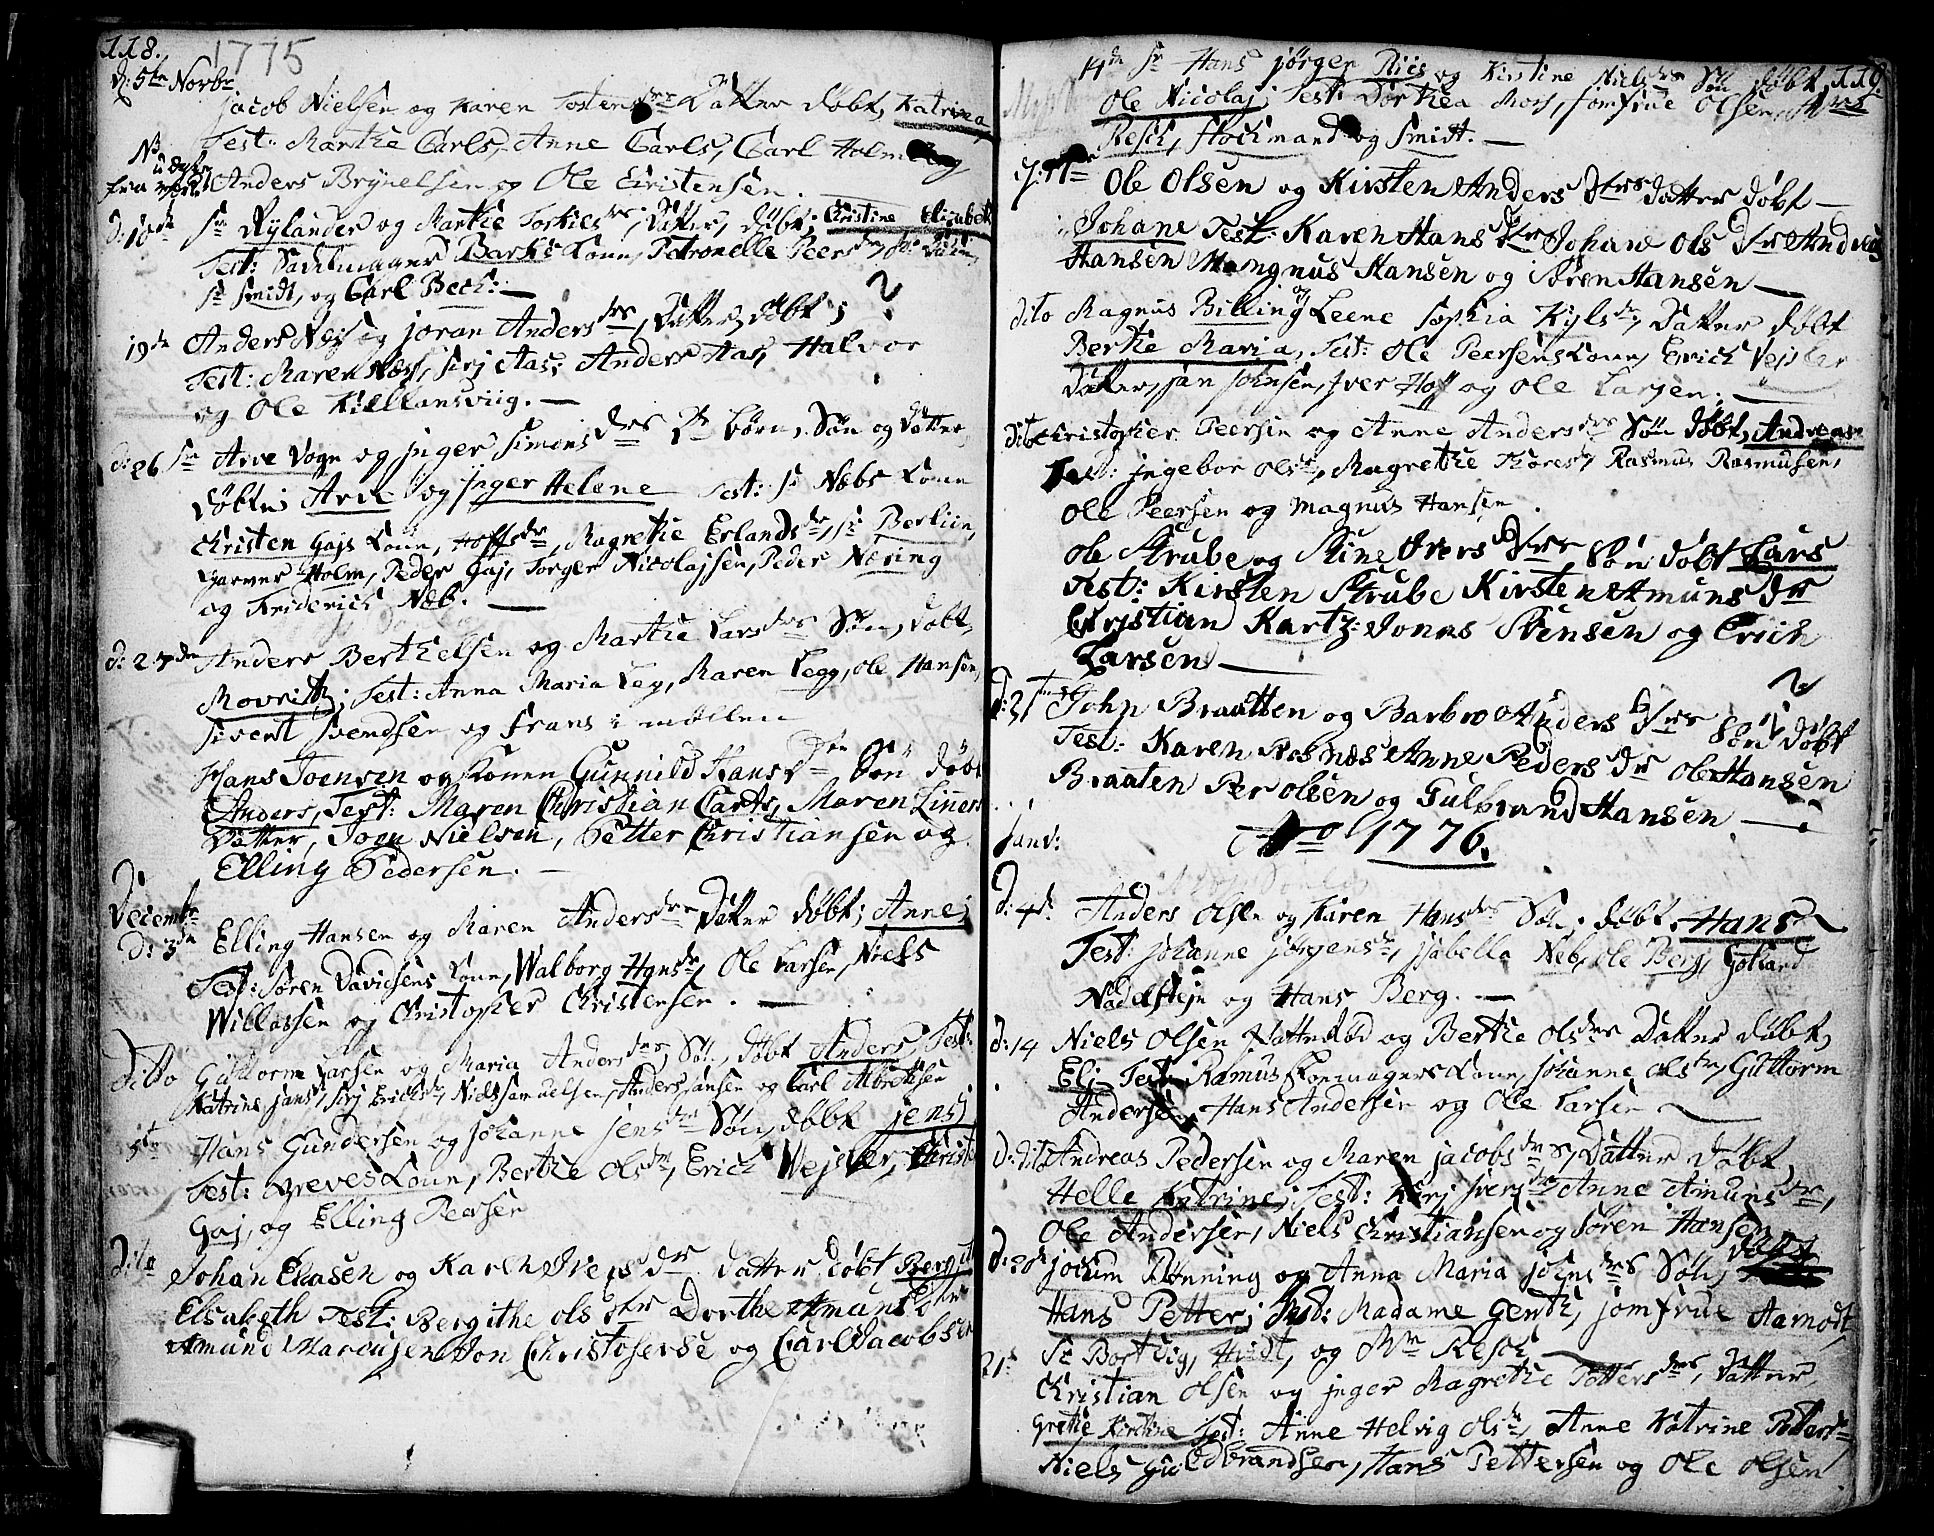 118. 1775
d: 5te Novbr
Jacob Nielsen og Karen Tostensdr Datter døbt, Katrina
Test: Marthe Carls, Anne Carls, Carl Holm
Anders Brynelsen og Ole Cristensen.
d: 18de Sr Rylander og Marthe Datter, døbt; Kristine Elisabeth
Test: Sadelmager Barths Kone, Petronelle Peersdr,
Sr Smidt, og Carl Bech: —
19de Anders Næs og Joran Andersdtr, Datter døbt; ?
Test: Maren Næss, Sirj Aas, Anders Aas, Halvor
og Ole Kiellansviig. —
d: 26 Sr Arve Vogn og Inger Simonsdtr 2de børn, Søn og Datter,
døbt; Arve og Inger Helene Test: Sr Næbs Kone
Christen Gajs Kone, Hoffsdtr, Magrethe Erlandsdr, Sr Berliin,
Garver Holm, Peder Gaj, Torger Nicolajsen, Peder Næring
og Friderich Næb. —
d: 27de Anders Berthelsen og Marthe Larsdtr Søn, døbt,
Movritz; Test: Anna Maria Leg, Maren Legg, Ole Hansen,
Sivert Svendsen og Frans i møllen
Hans Joensen og Konen Gunnild Hansdtr Søn døbt
Anders, Test: Maren Christian Carts, Maren Liners
Datter, Joen Nielsen, Petter Christiansen og
Elling Pedersen. —
Decembr
d: 3de Elling Hansen og Maren Andersdtr Datter døbt; Anne;
Test: Søren Davidsens Kone, Walborg Hansdr, Ole Larsen, Niels
Willassen og Christopher Christensen. —
Ditto Guttorm Larsen og Maria Andersdtr, Søn, døbt Anders, Test:
Katrine Jans, Sirj Erichsdr, Niels Samuelsen, Anders Jansen og Carl Albretsen
5te Hans Gundersen og Johanne Jensdtr Søn, døbt Jens;
Test: Greves Kone, Berthe Olsdtr, Erich Wejsler,
Gaj, og Elling Peersen
Dito Johan Ellasen og Karen Iversdr datter døbt Bergit
Elsabeth Test: Bergithe Ols dtr Dorthe Amuns dtr
Amund Marcusen Jon Christofersen og Carl Jacobsen
14de Sr Hans Jørgen Riis og Kirstine Nielsdtr Søn døbt, 119.
Ole Nicolaj; Test: Dorthea Mors, Jomfrue Olsen, Mrs
Resch, Stockmand og Smidt. —
Ole Olsen og Kirsten Anders dtrs datter døbt —
Johane Test: Karen Hans dtr Johane Ols dtr Andreas
Hansen Mangnus Hansen og Søren Hansen —
dito Magnus Billing og Leene Sophia Kylsdr, Datter døbt
Berthe Maria, Test: Ole Peersens Kone, Erich Vejsler
Datter, Jan Johnsen, Iver Hoff og Ole Larsen. —
dito Cristopher Peersen og Anne Andersdtr Søn døbt, Andreas
Test: Ingebor Olsdr, Magrethe Thoresdr, Rasmus Rasmusen,
Ole Peersen og Magnus Hansen.
Ole Strube og Stine Ivers dtrs Søn døbt Lars
Test: Kirsten Strube Kirsten Amuns dtr
Cristian Hartz: Jonas Stensen og Erich
Larsen —
d: 31te John Braatten og Barbro Anders dtrs Søn døbt
Test: Karen Rosnæs Anne Peders dtr Ole Hansen
Braaten Per Olsen og Gulbrand Hansen —
Janv: Ao 1776.
d: 4de Anders Olsen og Karen Hansdtr Søn, døbt, Hans
Test: Johanne Jørgensdr, Isabella Neb, Ole Berg, Gothard
Nadelstejn og Hans Berg. —
d: 14 Niels Olsen Nattesdød og Berthe Olsdtr Datter døbt,
Eli Test: Ramus Skomagers Kone, Johanne Olsdtr, Guttorm
Andersen, Hans Andersen og Ole Larsen
d: dito Andreas Pedersen og Maren Jacobsdtr, Datter døbt,
Helle Katrine; Test: Anne Amunsdtr,
Ole Andersen, Niels Christiansen og Søren Hansen
d: 20de Jocum Rønning og Anna Maria Johnsdtr Søn, døbt
Hans Petter; Test: Madame Genth, Jomfrue Aamodt,
Sr Bortdig, Hvidt, og Mr Resch —
21de Christian Olsen og Inger Magrethe Pettersdtr, Datter,
Grethe Kirstine Test: Anne Helvig Olsdr, Anne Katrine Peders-
Niels Guldbrandsen, Hans Pettersen og Ole Olsen